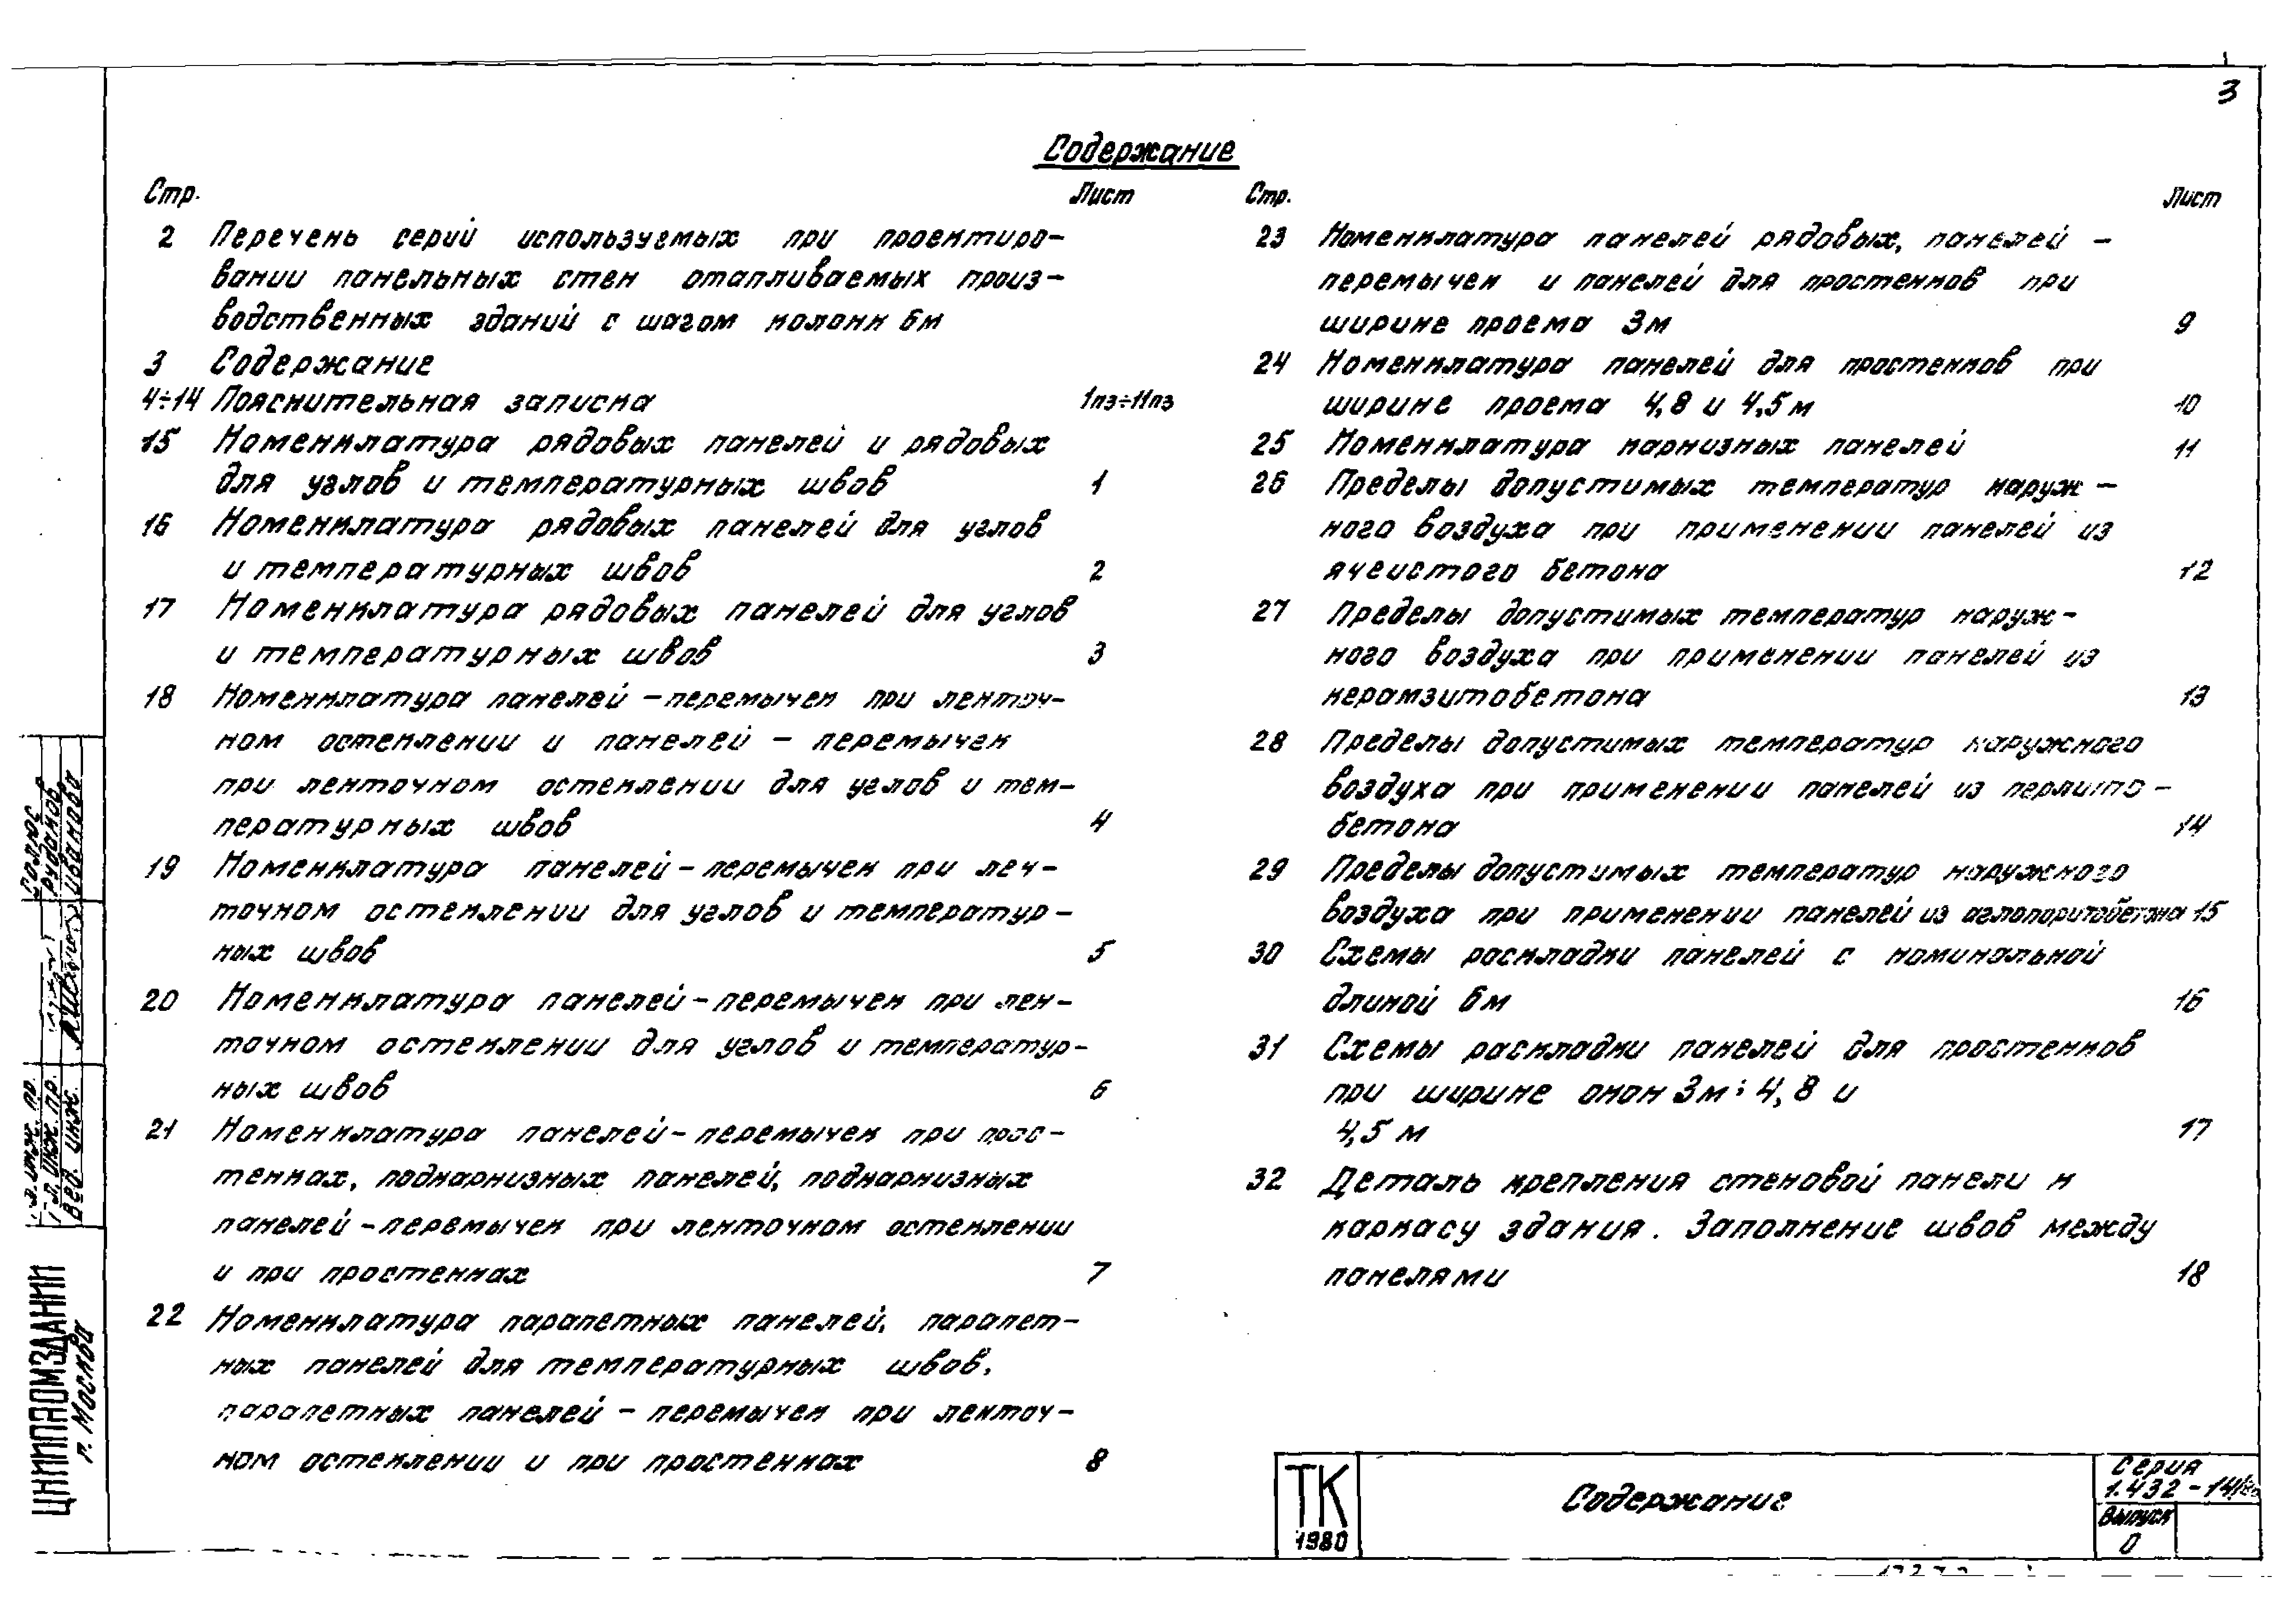 3
Содержание
Стр. Лист
2 Перечень серий используемых при проектиро-
вании панельных стен отапливаемых произ-
водственных зданий с шагом колонн 6м
3 Содержание
4÷14 Пояснительная записка 1пз÷11пз
15 Номенклатура рядовых панелей и рядовых
для углов и температурных швов 1
16 Номенклатура рядовых панелей для углов
и температурных швов 2
17 Номенклатура рядовых панелей для углов
и температурных швов 3
18 Номенклатура панелей-перемычек при ленточ-
ном остеклении и панелей - перемычек
при ленточном остеклении для углов и тем-
пературных швов 4
19 Номенклатура панелей-перемычек при лен-
точном остеклении для углов и температур-
ных швов 5
20 Номенклатура панелей-перемычек при лен-
точном остеклении для углов и температур-
ных швов 6
21 Номенклатура панелей-перемычек при прос-
тенках, подкарнизных панелей, подкарнизных
панелей-перемычек при ленточном остеклении
и при простенках 7
22 Номенклатура парапетных панелей, парапет-
ных панелей для температурных швов,
парапетных панелей - перемычек при ленточ-
ном остеклении и при простенках 8
Стр. Лист
23 Номенклатура панелей рядовых, панелей -
перемычек и панелей для простенков при
ширине проема 3м 9
24 Номенклатура панелей для простенков при
ширине проема 4,8 и 4,5м 10
25 Номенклатура карнизных панелей 11
26 Пределы допустимых температур наруж-
ного воздуха при применении панелей из
ячеистого бетона 12
27 Пределы допустимых температур наруж-
ного воздуха при применении панелей из
керамзитобетона 13
28 Пределы допустимых температур наружного
воздуха при применении панелей из перлито-
бетона 14
29 Пределы допустимых температур наружного
воздуха при применении панелей из аглопоритобетона 15
30 Схемы раскладки панелей с номинальной
длиной 6м 16
31 Схемы раскладки панелей для простенков
при ширине окон 3м; 4,8 и
4,5 м 17
32 Деталь крепления стеновой панели к
каркасу здания. Заполнение швов между
панелями 18
ТК
1980
Содержание
Серия
1.432-14/80
Выпуск
0
Гл. инж. пр.
Вед. инж. Иванова
ЦНИИПРОМЗДАНИЙ
г. Москва